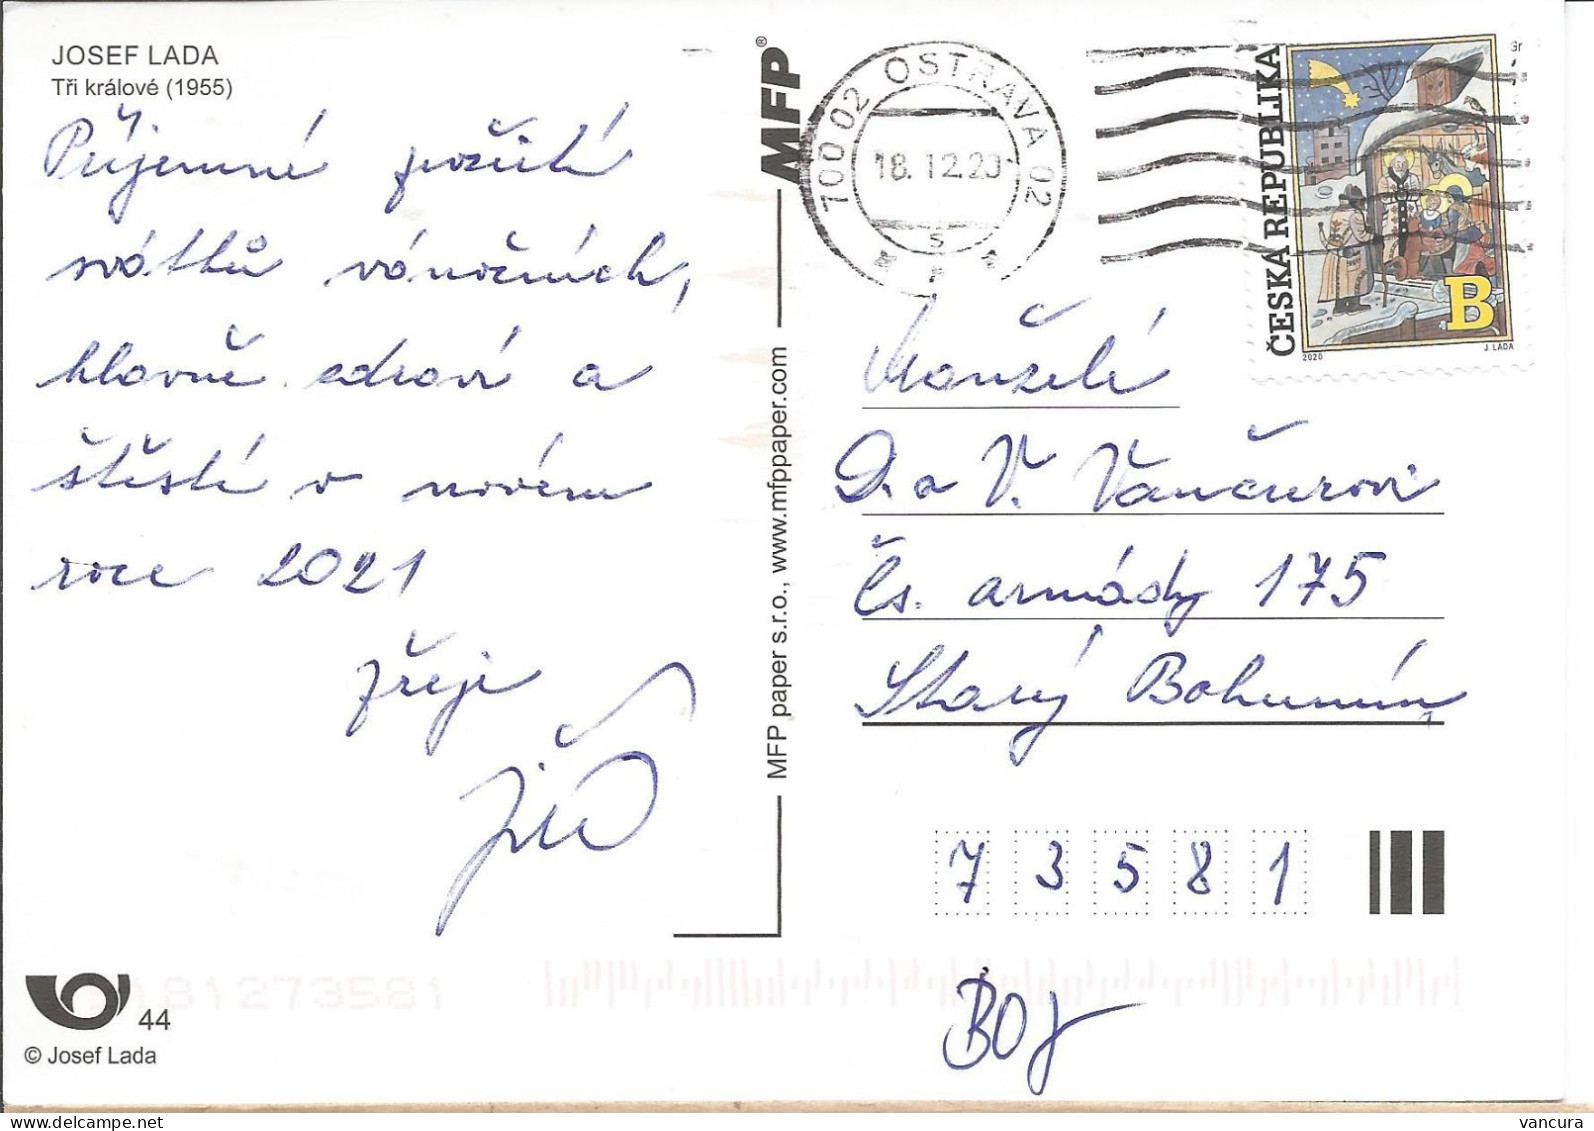 JOSEF LADA
Tři králové (1955)
Příjemné požití
svátků vánočních,
hlavně zdraví a
štěstí v novém
roce 2021
přeje
Jiří
MFP®
MFP paper s.r.o., www.mfppaper.com
700 02 OSTRAVA 02
18.12.20
ČESKÁ REPUBLIKA
B
2020
J. LADA
Manželé
D. a V. Vančurovi
Čs. armády 175
Starý Bohumín
7 3 5 8 1
BOJ
181273581
44
© Josef Lada
vancura